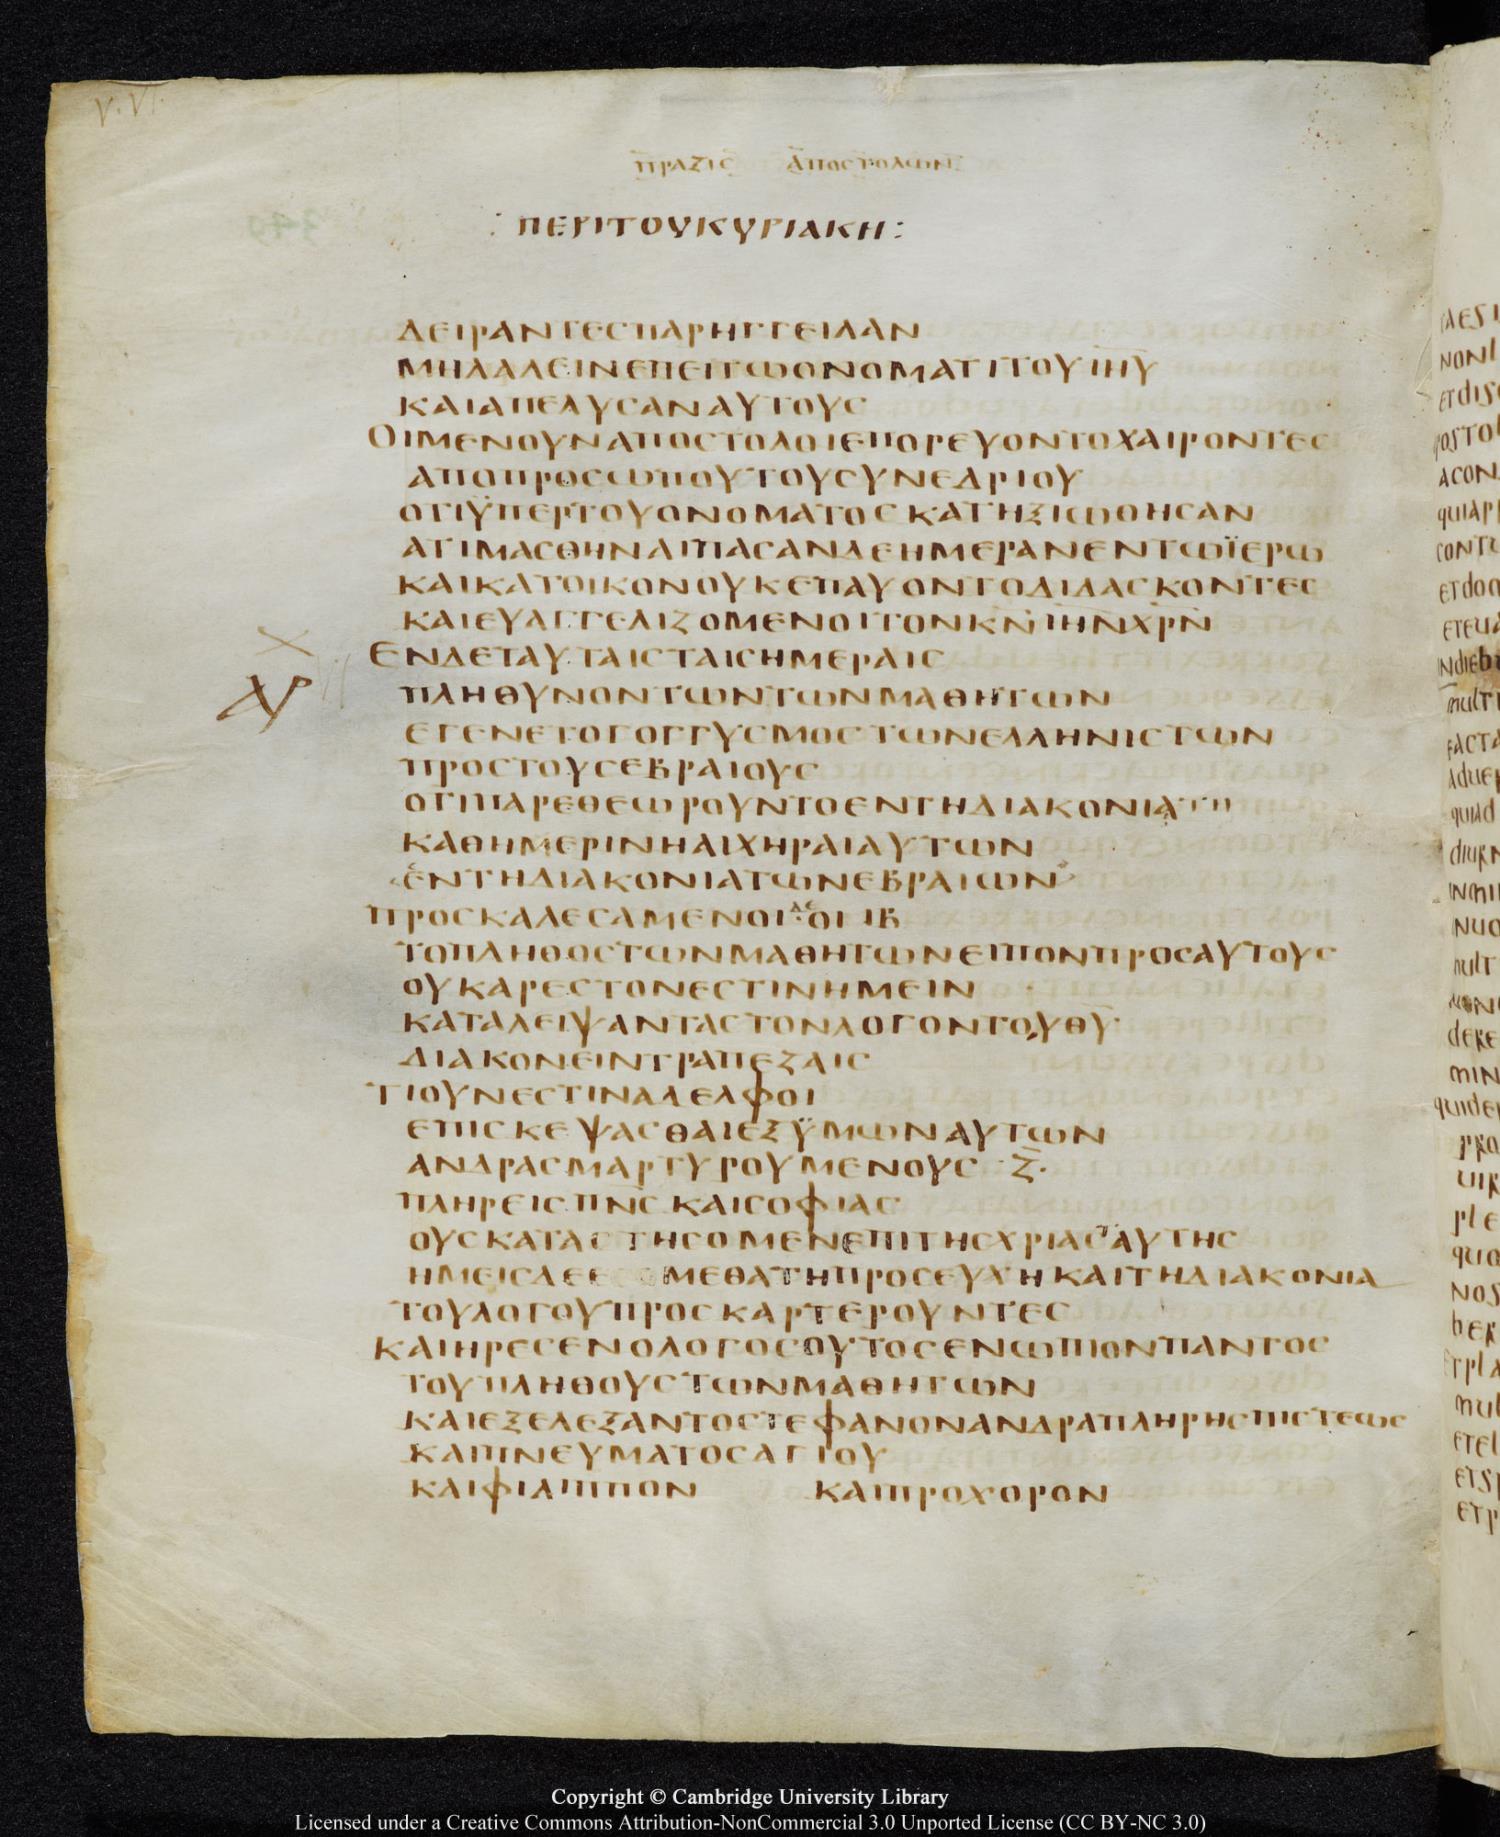 V. VI.
ΠΡΑΞΙϹ ΑΠΟϹΤΟΛΩΝ
: ΠΕΡΙΤΟΥΚΥΡΙΑΚΗ :
ΔΕΙΡΑΝΤΕϹΠΑΡΗΓΓΕΙΛΑΝ
ΜΗΛΑΛΕΙΝΕΠΕΙΤΩΟΝΟΜΑΤΙΤΟΥΙΗΥ
ΚΑΙΑΠΕΛΥϹΑΝΑΥΤΟΥϹ
ΟΙΜΕΝΟΥΝΑΠΟϹΤΟΛΟΙΕΠΟΡΕΥΟΝΤΟΧΑΙΡΟΝΤΕϹ
ΑΠΟΠΡΟϹΩΠΟΥΤΟΥϹΥΝΕΔΡΙΟΥ
ΟΤΙΫΠΕΡΤΟΥΟΝΟΜΑΤΟϹΚΑΤΗΞΙΩΘΗϹΑΝ
ΑΤΙΜΑϹΘΗΝΑΙΠΑϹΑΝΔΕΗΜΕΡΑΝΕΝΤΩΪΕΡΩ
ΚΑΙΚΑΤΟΙΚΟΝΟΥΚΕΠΑΥΟΝΤΟΔΙΔΑϹΚΟΝΤΕϹ
ΚΑΙΕΥΑΓΓΕΛΙΖΟΜΕΝΟΙΤΟΝΚΝΙΗΝΧΡΝ
ΕΝΔΕΤΑΥΤΑΙϹΤΑΙϹΗΜΕΡΑΙϹ
ΠΛΗΘΥΝΟΝΤΩΝΤΩΝΜΑΘΗΤΩΝ
ΕΓΕΝΕΤΟΓΟΓΓΥϹΜΟϹΤΩΝΕΛΛΗΝΙϹΤΩΝ
ΠΡΟϹΤΟΥϹΕΒΡΑΙΟΥϹ
ΟΤΙΠΑΡΕΘΕΩΡΟΥΝΤΟΕΝΤΗΔΙΑΚΟΝΙΑΤΗ
ΚΑΘΗΜΕΡΙΝΗΑΙΧΗΡΑΙΑΥΤΩΝ
ΕΝΤΗΔΙΑΚΟΝΙΑΤΩΝΕΒΡΑΙΩΝ
ΠΡΟϹΚΑΛΕϹΑΜΕΝΟΙΔΕΟΙΙΒ
ΤΟΠΛΗΘΟϹΤΩΝΜΑΘΗΤΩΝΕΙΠΟΝΠΡΟϹΑΥΤΟΥϹ
ΟΥΚΑΡΕϹΤΟΝΕϹΤΙΝΗΜΕΙΝ
ΚΑΤΑΛΕΙΨΑΝΤΑϹΤΟΝΛΟΓΟΝΤΟΥΘΥ
ΔΙΑΚΟΝΕΙΝΤΡΑΠΕΖΑΙϹ
ΤΙΟΥΝΕϹΤΙΝΑΔΕΛΦΟΙ
ΕΠΙϹΚΕΨΑϹΘΑΙΕΞΫΜΩΝΑΥΤΩΝ
ΑΝΔΡΑϹΜΑΡΤΥΡΟΥΜΕΝΟΥϹ·Ζ·
ΠΛΗΡΕΙϹΠΝϹΚΑΙϹΟΦΙΑϹ
ΟΥϹΚΑΤΑϹΤΗϹΟΜΕΝΕΠΙΤΗϹΧΡΙΑϹΑΥΤΗϹ
ΗΜΕΙϹΔΕΕϹΟΜΕΘΑΤΗΠΡΟϹΕΥΧΗΚΑΙΤΗΔΙΑΚΟΝΙΑ
ΤΟΥΛΟΓΟΥΠΡΟϹΚΑΡΤΕΡΟΥΝΤΕϹ
ΚΑΙΗΡΕϹΕΝΟΛΟΓΟϹΟΥΤΟϹΕΝΩΠΙΟΝΠΑΝΤΟϹ
ΤΟΥΠΛΗΘΟΥϹΤΩΝΜΑΘΗΤΩΝ
ΚΑΙΕΞΕΛΕΞΑΝΤΟϹΤΕΦΑΝΟΝΑΝΔΡΑΠΛΗΡΗϹΠΙϹΤΕΩϹ
ΚΑΙΠΝΕΥΜΑΤΟϹΑΓΙΟΥ
ΚΑΙΦΙΛΙΠΠΟΝ ΚΑΙΠΡΟΧΟΡΟΝ
Copyright © Cambridge University Library
Licensed under a Creative Commons Attribution-NonCommercial 3.0 Unported License (CC BY-NC 3.0)